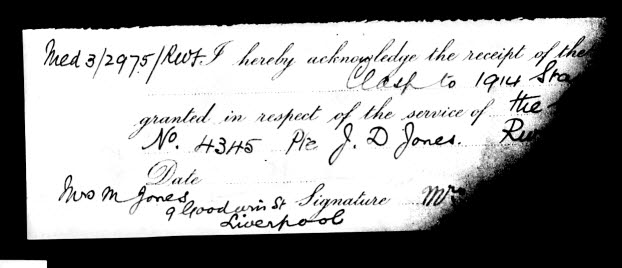 Med 3/2975/RWF. I hereby acknowledge the receipt of the
Clasp to 1914 Sta
granted in respect of the service of the
No. 4345 Pte J. D Jones. RW
Date
Mrs M Jones Signature Mrs
9 Goodwin St
Liverpool